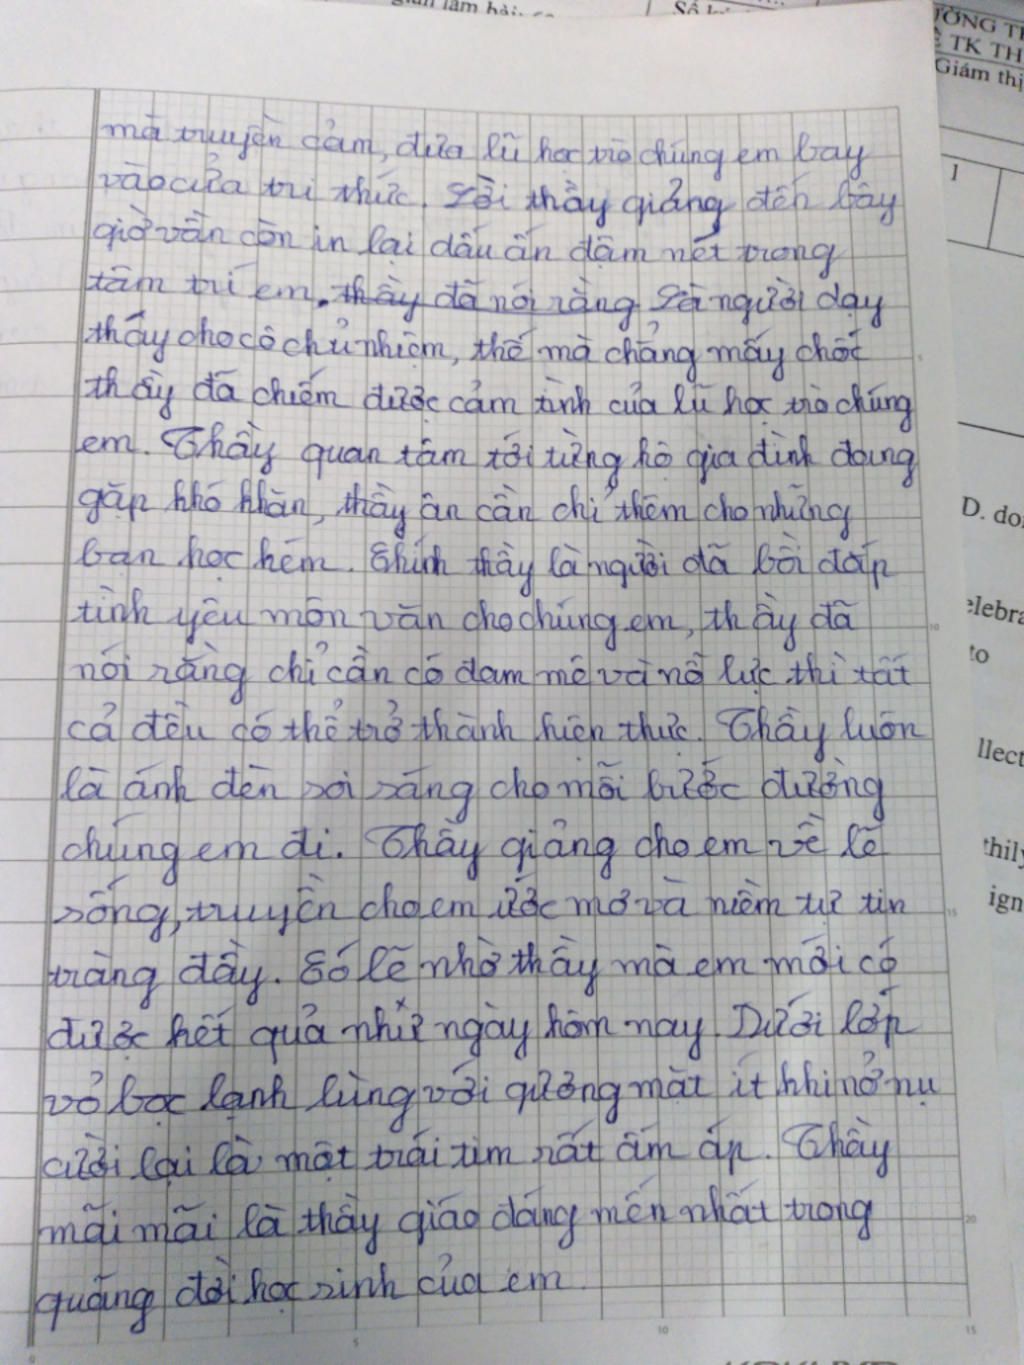 gian làm bài:
Số
ƯỜNG
TK TH
Giám thị
1
mà truyền cảm, đưa lũ học trò chúng em bay
vào cửa tri thức. Lời thầy giảng đến bây
giờ vẫn còn in lại dấu ấn đậm nét trong
tâm trí em. thầy đã nói rằng Là người dạy
thầy cho cô chủ nhiệm, thế mà chẳng mấy chốc
thầy đã chiếm được cảm tình của lũ học trò chúng
em. Thầy quan tâm tới từng hộ gia đình đang
gặp khó khăn, thầy ân cần chỉ thêm cho những
bạn học kém. Chính thầy là người đã bồi đắp
tình yêu môn văn cho chúng em, thầy đã
nói rằng chỉ cần có đam mê và nỗ lực thì tất
cả đều có thể trở thành hiện thực. Thầy luôn
là ánh đèn soi sáng cho mỗi bước đường
chúng em đi. Thầy giảng cho em về lẽ
sống, truyền cho em ước mơ và niềm tự tin
tràng đầy. Có lẽ nhờ thầy mà em mới có
được kết quả như ngày hôm nay. Dưới lớp
vỏ bọc lạnh lùng với gương mặt ít khi nở nụ
cười lại là một trái tim rất ấm áp. Thầy
mãi mãi là thầy giáo đáng mến nhất trong
quãng đời học sinh của em.
D. do
elebra
to
llect
thily
ign
5
10
15
20
0
5
10
15